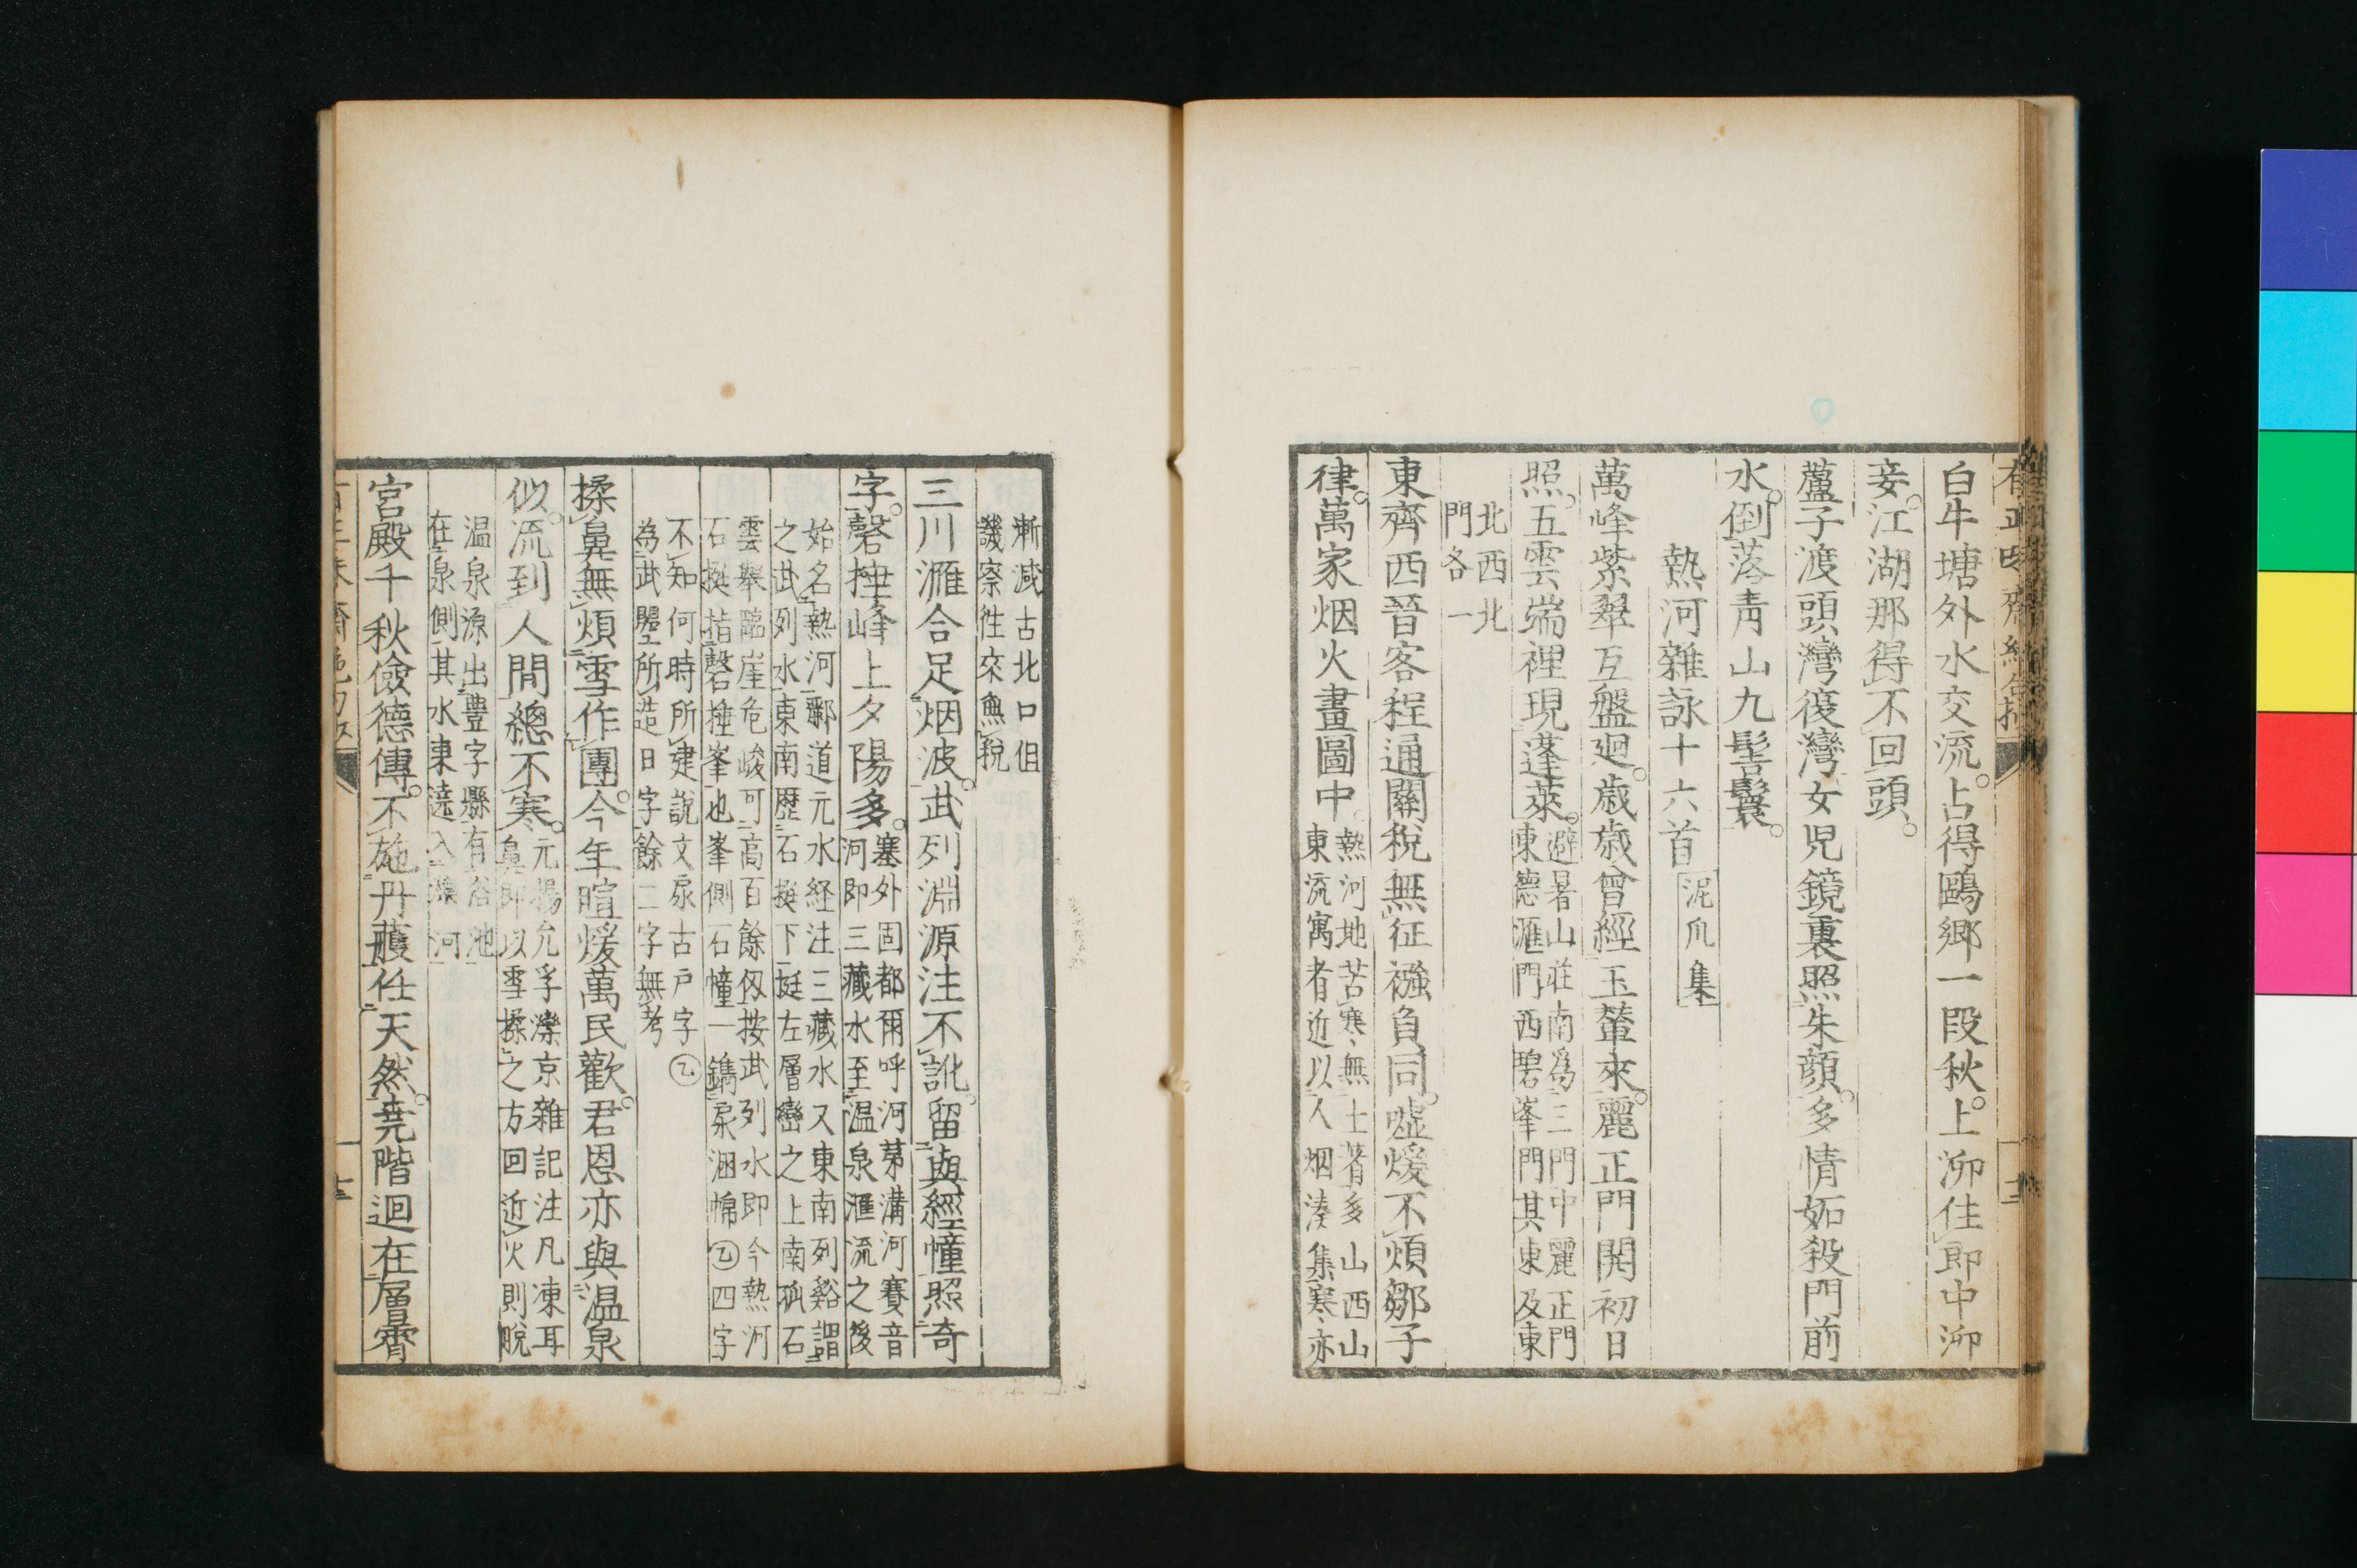 白牛塘外水交流。占得鷗鄉一段秋。上泖住即中泖
妾。江湖那得不回頭。
蘆子渡頭灣復灣女児鏡裏照朱顔。多情妬殺門前
水。倒落青山九髻鬟。
熱河雜詠十六首 泥爪集
萬峰紫翠互盤廻。歲歲曾經玉輦來。麗正門開初日
照。五雲端裡現蓬萊。
避暑山莊南爲三門中麗正門
東德滙門西碧峯門其東及東
北西北
門各一
東齊西晉客程通關稅無征襁負同。噓煖不煩鄒子
律。萬家烟火畫圖中。
熱河地苦寒、無土著多山西山
東流寓者近以人烟湊集寒、亦
漸減古北口但
譏察徃來無稅
三川滙合足烟波。武列淵源注不訛。留與經幢照奇
字。磬捶峰上夕陽多。
塞外固都爾呼河茅溝河賽音
河即三藏水至温泉滙流之後
始名熱河酈道元水経注三藏水又東南列谿謂
之武列水東南歴石挺下挺左層巒之上南孤石
雲舉臨崖危峻可高百餘仭按武列水即今熱河
石挺指磬捶峯也峯側石幢一鐫
㔾四字
不知何時所建說文
古戸字㔾
為武
所造日字餘二字無考
揉鼻無煩雪作團。今年暄煖萬民歡。君恩亦與温泉
似。流到人間總不寒。
元楊允孚灤京雜記注凡凍耳
鼻即以雪揉之方回近火則脫
温泉源出豊字
有浴池
在泉側其水東遶入灤河
宮殿千秋儉德傳。不施丹雘任天然。堯階迴在層霄